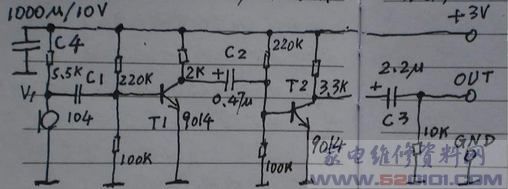 1000μ/10V
+3V
C4
5.5K
C1
220K
2K
C2
220K
3.3K
2.2μ
OUT
V1
104
T1
9014
0.47μ
T2
9014
C3
10K
GND
100K
100K
家电维修资料网
www.520101.com